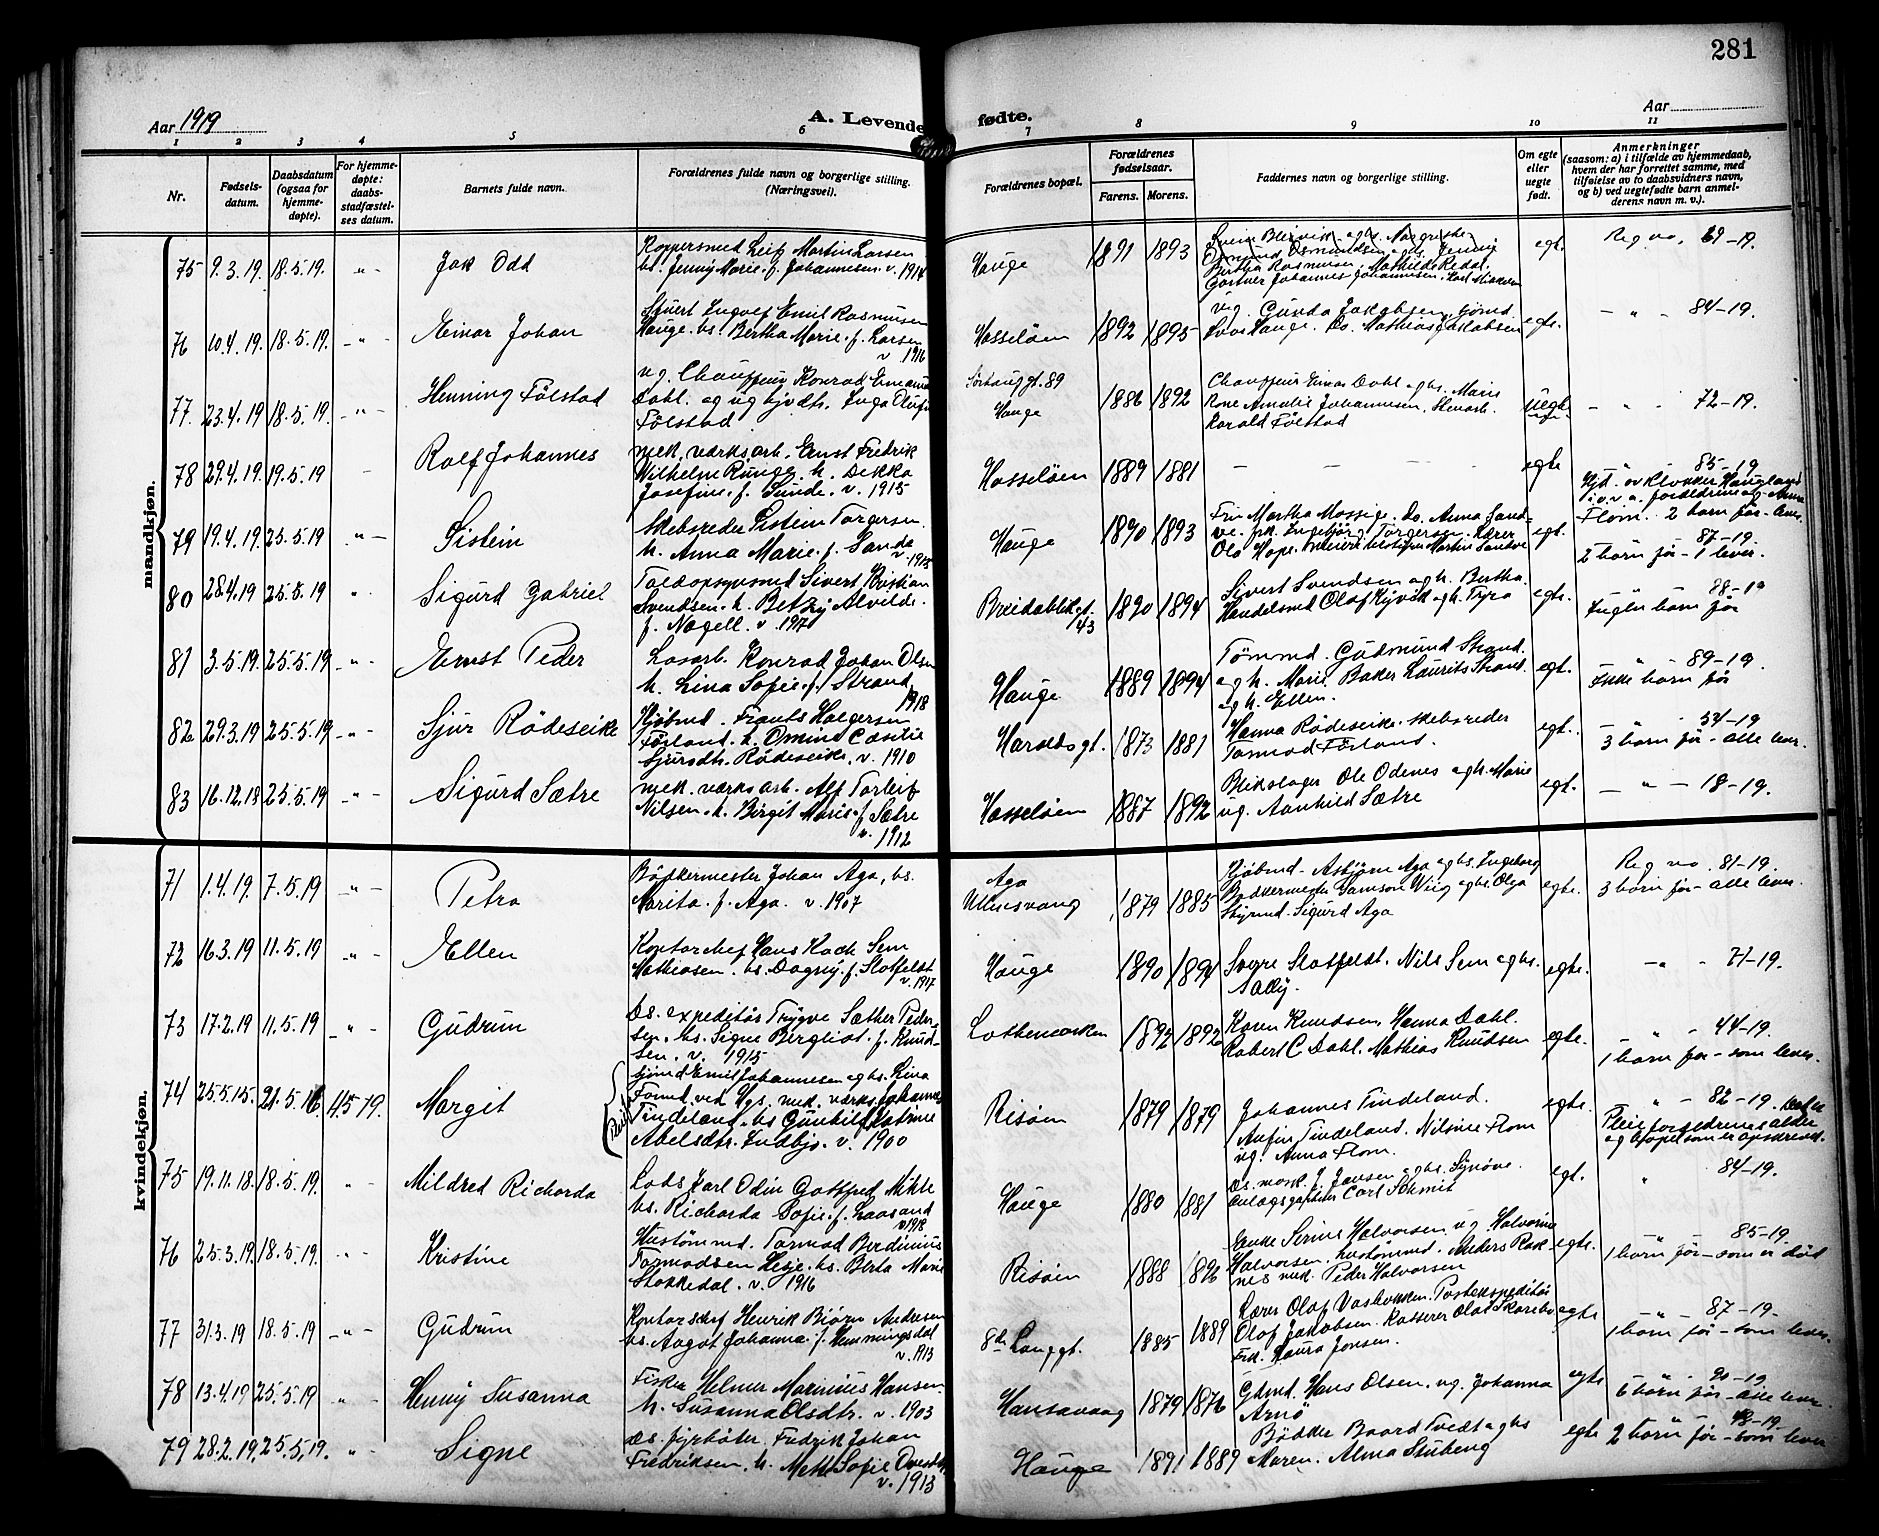 281
Aar 1919
A. Levende fødte.
Aar
1 2 3 4 5 6 7 8 9 10 11
Nr.
Fødsels-
datum.
Daabsdatum
(ogsaa for
hjemme-
døpte).
For hjemme-
døpte:
daabs-
stadfæstel-
ses datum.
Barnets fulde navn.
Forældrenes fulde navn og borgerlige stilling.
(Næringsvei).
Forældrenes bopæl.
Forældrenes
fødselsaar.
Farens. Morens.
Faddernes navn og borgerlige stilling.
Om egte
eller
uegte
født.
Anmerkninger
(saasom: a) i tilfælde av hjemmedaab,
hvem der har forrettet samme, med
tilføielse av to daabsvidners navn,
og b) ved uegtefødte barn anmel-
derens navn m. v.).
mandkjøn.
75 9.3.19. 18.5.19. -"- Jak Odd
Koppersmed Leif Martin Larsen
hs. Jenny Marie f. Johannesen v. 1914
Hauge 1891 1893
Bertha Rasmusen, Mathilde Redal,
Gartner Johannes Johannesen,
egt. Reg no. 69-19.
76 10.4.19. 18.5.19. -"- Einar Johan
Stuert Ingolf Emil Rasmusen
Hauge. hs. Bertha Marie f. Larsen
v. 1916
Hasseløen 1892 1895
ug. Gunda Jakobsen,
Lovi Hauge. Do. Mathias Jakobsen
egte. -"- 84-19.
77. 23.4.19 18.5.19. -"- Henning Fölstad
ug. Chauffeur Konrad Emanuel
Dahl. og ug. Inga Olufi
Fölstad
Sørhauggt. 89
Hauge 1886 1892
Chauffeur Einar Dahl og hs. Maris
Rone Amalie Johannesen,
Harald Fölstad
uegte - " - 72-19.
78 29.4.19. 19.5.19 - Rolf Johannes
mek. værksarb. Ernst Fredrik
Wilhelm Runge h. Dekka
Josefine. f. Sunde. v. 1915
Hasseløen 1889 1881 - - - egte
85-19
Hjd. av Klokker Haugland
Flom. 2 barn før - lever.
79 19.4.19 25.5.19 -"- Sistein
Skibsreder Sistein Torgersen
h. Anna Marie. f. Sanda
v. 1915
Hauge 1890 1893
Fru Martha Mossige. Do. Anna Sand-
ve. frk. Ingebjørg Torgersen. Lærer
Ola Hope.
egt. 87-19.
2 børn før - 1 lever.
80 28.4.19 25.5.19 " Sigurd Gabriel
Toldopsynsmd Sivert Kristian
Svendsen. h. Betzy Alvilde.
f. Nagell. v.
Breidablikgt.
43
1890 1894
Sivert Svendsen og h. Bertha.
Handelsmd Olaf Kyvik og h. Tyra
egte. 88-19
Ingen barn før
81 3.5.19. 25.5.19 -"- Ernst Peder
Losarb. Konrad Johan Olsen
h. Lina Sofie. f. Strand
1918
Hauge 1889 1894
Tømmd. Gudmund Strand.
og h. Marie, Baker Laurits Strand
og h. Ellen.
egt. " 89-19
Ikke børn før
82 29.3.19 25.5.19 -"- Sjur Rödeseike
Kjøbmd. Frants Halgersen
Förland. h. Omine Cæsilie
Sjursdtr. Rödeseike, v. 1910
Haraldsgt. 1873 1881
Hanna Rödeseike. Skibsreder
Tormod Förland.
egt. - " - 54-19
3 børn før - alle lever.
83 16.12.18 25.5.19 -"- Sigurd Sætre
mek. værksarb. Alf Torleif
Nilsen. h. Birgit Marie f. Sætre
v. 1912
Hasseløen 1887 1892
Blikslager Ole Odenes og h. Marie
ug. Aanhild Sætre
egt. - " - 18-19.
kvindekjøn.
71 1.4.19. 7.5.19 -"- Petra
Bødkermester Johan Aga, hs.
Marita. f. Aga. v. 1907
Aga
Ullensvang 1879 1885
Kjøbmd. Asbjørn Aga og hs. Ingeborg
Bødkermester Samson Wiig og hs. Olga
Styrmd. Sigurd Aga
egte. Reg no. 81-19.
3 børn før - alle lever.
72 16.3.19 11.5.19 -"- Ellen
Kontorchef Hans Koch Sem
Mathiasen. hs. Dagny. f. Slotfeldt
v. 1917
Hauge 1890 1894
Sogne Slotfeldt. Nils Sem og hs.
Nally.
egte. -"- 71-19.
73 17.2.19 11.5.19 - " Gudrun
Ds. expeditør Trygve Sæther Peder-
sen. hs. Signe Bergliot. f. Knud-
sen. v. 1915
Lothemarken 1892 1892
Karen Knudsen, Hanna Dahl.
Robert C Dahl. Mathias Knudsen
egte. " - 44-19.
1 børn før - som lever.
74 25.5.15. 21.5.16 11.5 19. Margit
Emil Johannesen og hs. Lina
Formd. ved Hgs. mek. værks Johannes
Tindeland. hs Gunhild Katrine
Abelsdtr. Indbjo. v. 1900
Risøen 1879 1879
Johannes Tindeland.
Aufin Tindeland. Nilsine Flom
ug. Anna Flom.
egte. - " - 82-19.
Pleieforældrenes alder
og bopæl som er opskrevet.
75 19.11.18. 18.5.19. - " - Mildred Richarda
Lods Karl Odin Gottfred Mihle
hs. Richarda Sofie. f. Laasand
v. 1918
Hauge 1880 1881
Ds. mask. J. Jansen og hs. Synöve.
Anlægsgartner Carl Schmit
egt. " 84-19.
76 25.3.19 18.5.19. - " - Kristine
Hustømmd. Tormod Berdinius
Tormodsen Hesje. hs. Berta Marie
Stokkedal. v. 1916
Risøen 1888 1896
Enke Serine Halvorsen ug Halvorine
Halvorsen, hustømmd. Anders Rok-
nes mek. Peder Halvorsen
egte. - " - 85-19.
1 børn før - som er død
77 31.3.19 18.5.19. -"- Gudrun
Kontorchef Henrik Bjørn Andersen
hs. Aagot Johanna. f. Hemmingsdal
v. 1913
Langgt. 1885 1889
Lærer Olaf Vasbotten. Postekspeditør
Olaf Jakobsen. Kasserer Olaf Skorebo
Frk. Laura Jensen.
egte - " - 87-19.
1 børn før - som lever.
78 13.4.19 25.5.19 " Henny Susanna
Fisker Helmer Marinius Hansen.
h. Susanna Olsdtr. v. 1903
Hansavaag 1879 1876
Gdmd. Hans Olsen. ug. Johanna
Arnö
egte " 90-19
6 børn før - alle lever.
79 28.2.19. 25.5.19. " Signe
Ds. fyrbøter. Fredrik Johan
Fredriksen. h. Sofie
v. 1913
Hauge 1891 1889
Bødker Baard Tvedt og hs
Maren. Alma Stuberg
egte 48-19.
2 børn før - som lever